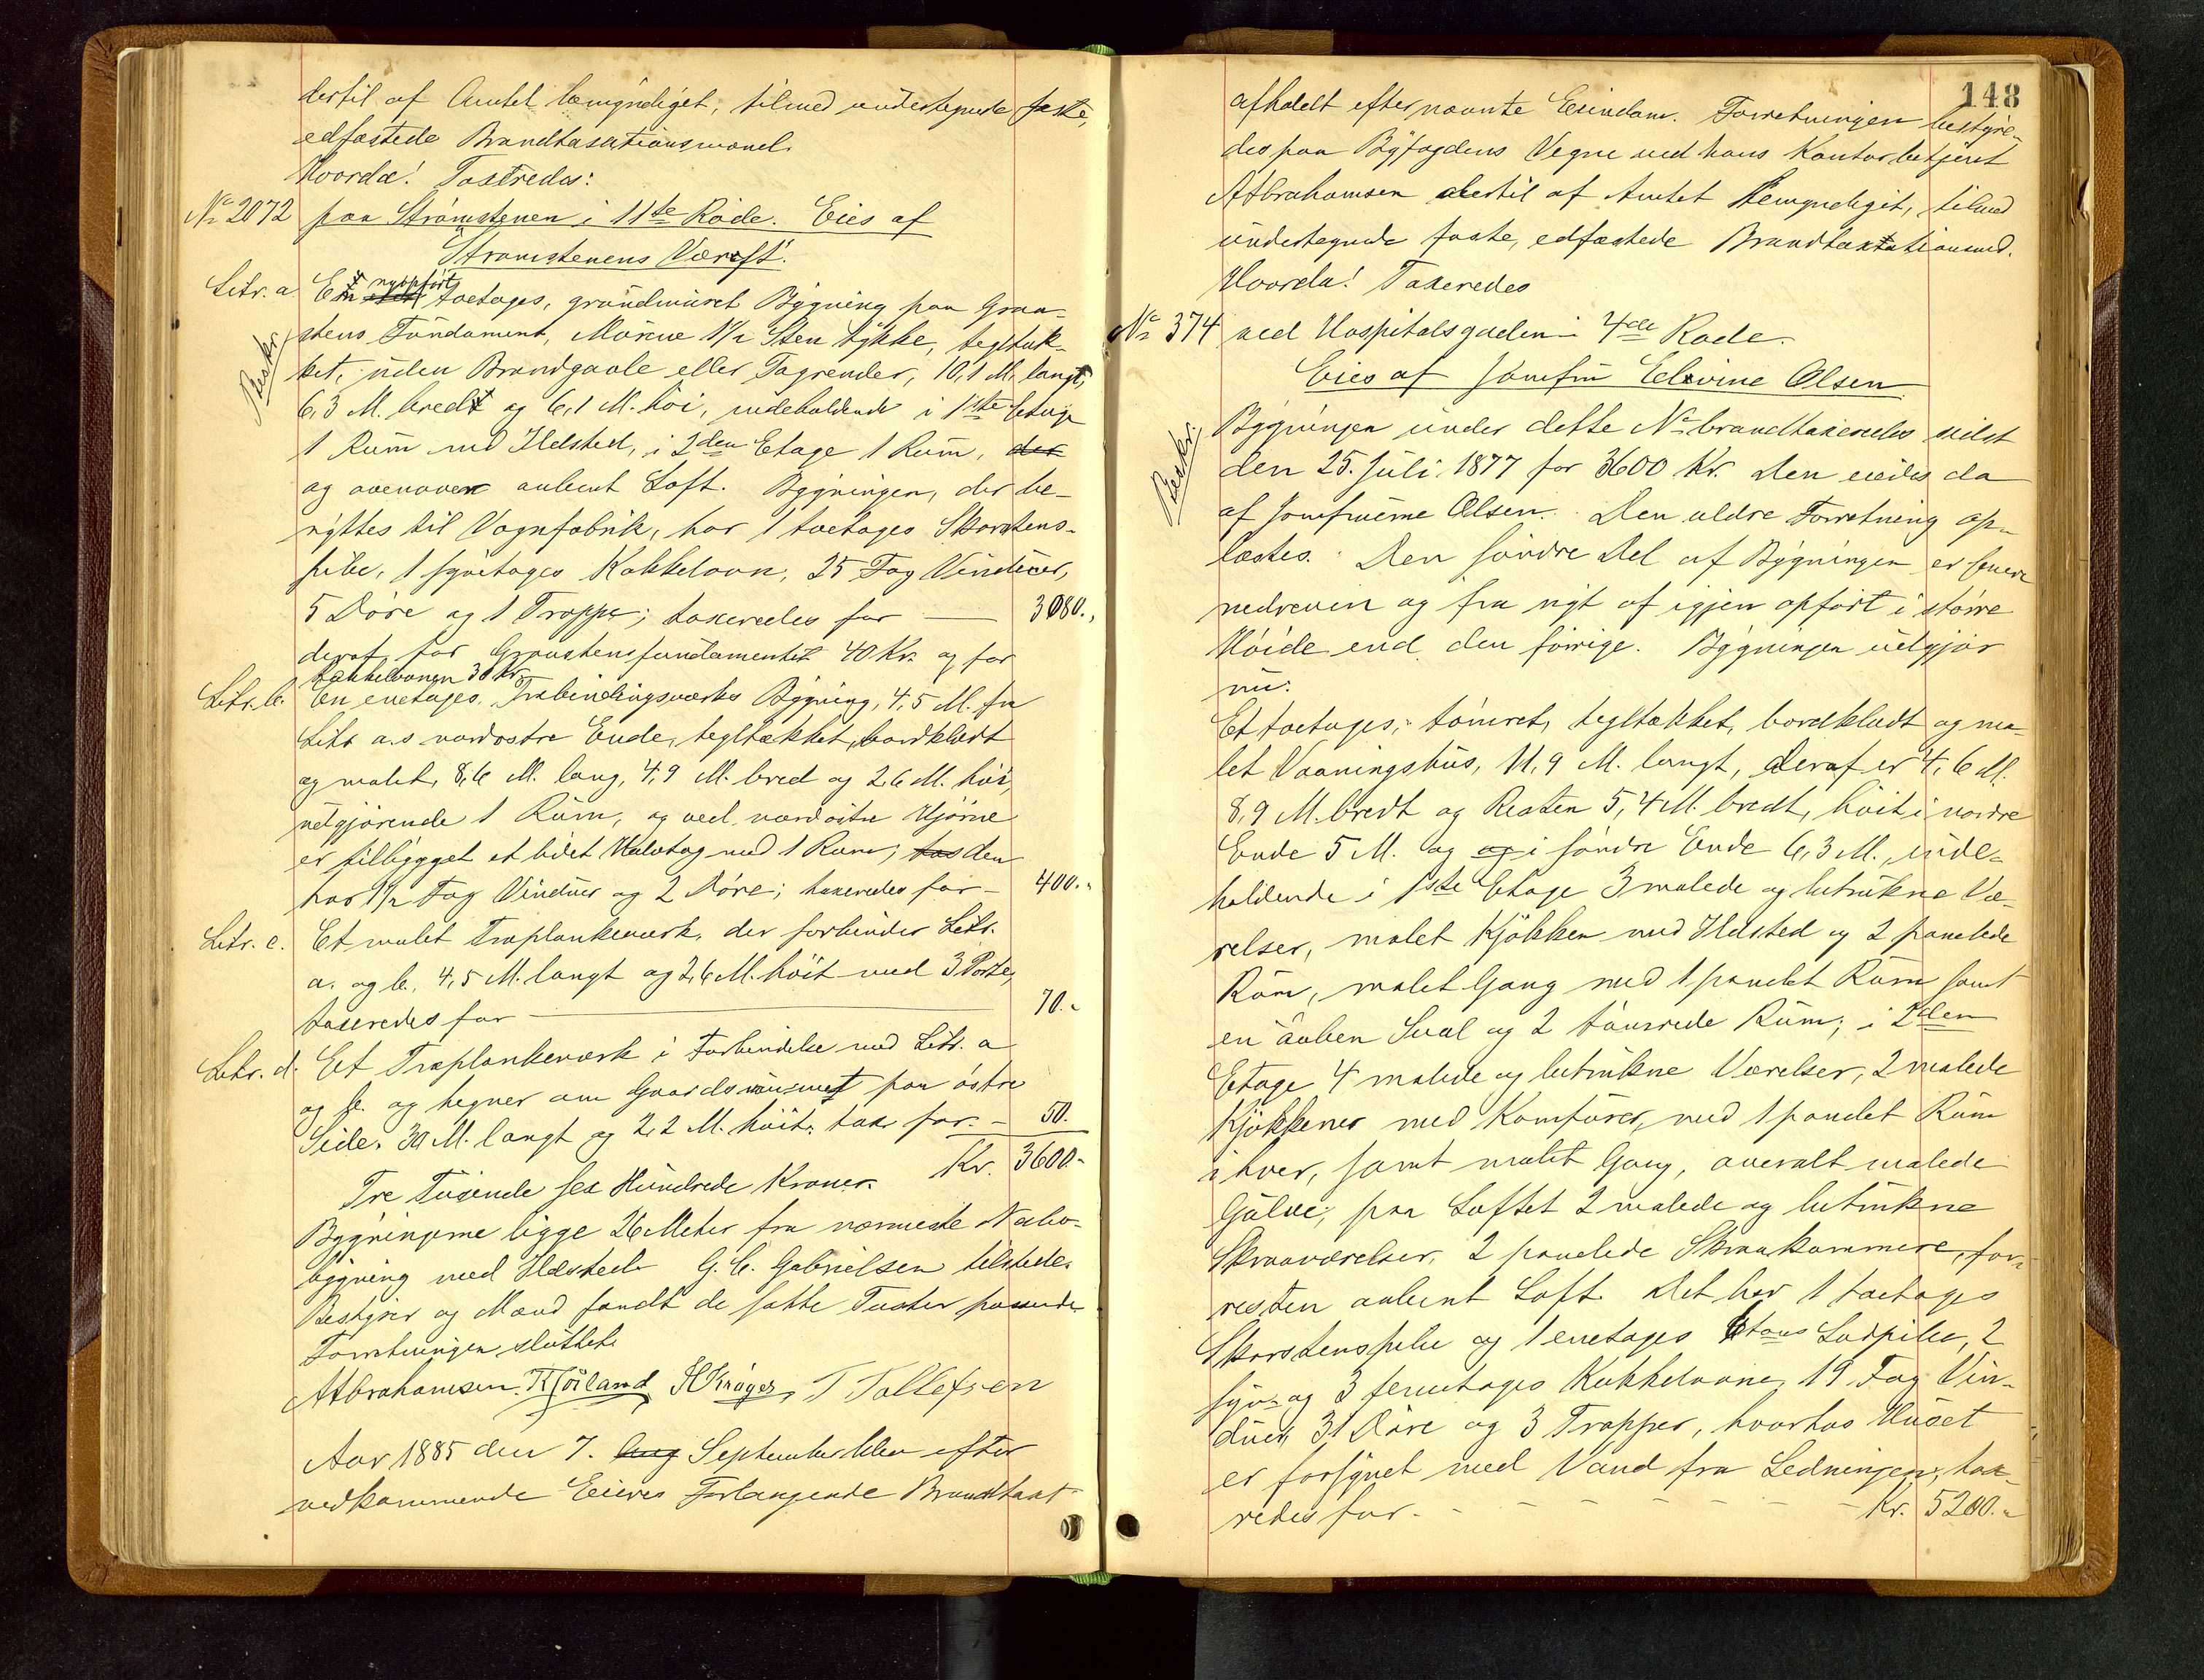 dertil af Amtet bemyndiget, tilmed undertegnede faste,
edfæstede Brandtaxationsmænd.
Hvorda! Taxtredes:
No 2072 paa Strømstenen i 11te Rode. Eies af
Strømstenens Værft.
Litr. a Et nyopført toetages, grundmuret Bygning paa Graa-
Beskr.
stens Fundament, Murene 1 1/2 Sten tykke, tegltæk-
ket, uden Brandgavle eller Tagrender, 10,1 M. langt,
6,3 M. bredt og 6,1 M. høi, indeholdende i 1ste Etage
1 Rum med Ildsted, i 2den Etage 1 Rum, der
og ovenover aabent Loft. Bygningen, der be-
nyttes til Vognfabrik, har 1 toetages Skorstens-
pibe, 1 syvetages Kakkelovn, 25 Fag Vinduer,
5 Døre og 1 Trappe; taxeredes for 3080.
deraf for Graastensfundamentet 40 Kr. og for
Kakkelovnen 30 Kr.
Litr. b. En enetages, Træbindingsværks Bygning, 4,5 M. fra
Litr a.s nordostre Ende, tegltækket, bordklædt
og malet, 8,6 M. lang, 4,9 M. bred og 2,6 M. høi,
udgjørende 1 Rum, og ved nordøstre Hjørne
er tilbygget et lidet Halvtag med 1 Rum; den
har 1 1/2 Fag Vinduer og 2 Døre; taxeredes for - 400.
Litr. c. Et malet Træplankeværk, der forbinder Litr.
a. og b. 4,5 M. langt og 2,6 M. høit med 3 Porte,
taxeredes for 70.
Litr. d. Et Træplankeværk i Forbindelse med Litr. a
og b. og hegner om Gaardsrummet paa østre
Side. 30 M. langt og 2,2 M. høit. tax. for. - 50.
Tre Tusende sex Hundrede Kroner. Kr. 3600.
Bygningerne ligge 26 Meter fra nærmeste Nabo-
bygning med Ildsted. G. C. Gabrielsen tilstede.
Bestyrer og Mænd fandt de satte Taxter passende
Forretningen sluttet.
Abrahamsen. Kjørland HKrøger, T Tallefsen
Aar 1885 den 7. Aug September blev efter
vedkommende Eieres Forlangende Brandtaxt
148
afholdt efternævnte Eiendom. Forretningen bestyre-
des paa Byfogdens Vegne ved hans Kontorbetjent
Abrahamsen dertil af Amtet bemyndiget, tilmed
undertegnede faste, edfæstede Brandtaxtationsmd.
Hvorda! Taxeredes
No 374 ved Hospitalsgaden i 4de Rode.
Eies af Jomfru Elevine Olsen
Beskr.
Bygningen under dette No brandtaxeredes sidst
den 25. Juli 1877 for 3600 Kr. Den eiedes da
af Jomfruerne Olsen. Den ældre Forretning op-
læstes. Den søndre Del af Bygningen er senere
nedreven og fra nyt af igjen opført i større
Høide end den forrige. Bygningen udgjør
nu:
Et toetages, tømret, tegltækket, bordklædt og ma-
let Vaaningshus, 11,9 M. langt, deraf er 4,6 M.
8,9 M. bredt og Resten 5,4 M. bredt, høit i nordre
Ende 5 M. og og i søndre Ende 6,3 M., inde-
holdende i 1ste Etage 3 malede og betrukne Væ-
relser, malet Kjøkken med Ildsted og 2 panelede
Rum, malet Gang med 1 panelet Rum samt
en aaben Sval og 2 tømrede Rum; i 2den
Etage 4 malede og betrukne Værelser, 2 malede
Kjøkkener med Komfurer, med 1 panelet Rum
i hver, samt malet Gang, overalt malede
Gulve; paa Loftet 2 malede og betrukne
Skraaværelser, 2 panelede Skraakammere, for-
resten aabent Loft. Det har 1 toetages
Skorstenspibe og 1 enetages Sodpibe, 2
syv- og 3 femetages Kakkelovne, 19 Fag Vin-
duer, 31 Døre og 3 Trapper, hvorhos Huset
er forsynet med Vand fra Ledningen, taxe-
redes for. - - - - - - - Kr. 5200.